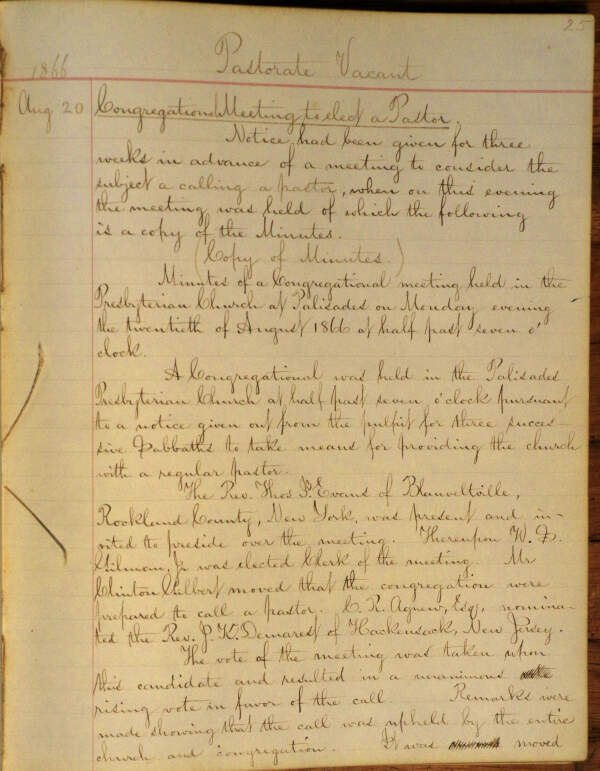 25
1866 Pastorate Vacant
Aug 20 Congregational Meeting to elect a Pastor.
Notice had been given for three
weeks in advance of a meeting to consider the
subject a calling a pastor, when on this evening
the meeting was held of which the following
is a copy of the Minutes.
(Copy of Minutes.)
Minutes of a Congregational meeting held in the
Presbyterian Church at Palisades on Monday evening
the twentieth of August 1866 at half past seven o'
clock.
A Congregational was held in the Palisades
Presbyterian Church at half past seven o'clock pursuant
to a notice given out from the pulpit for three succes-
sive Sabbaths to take means for providing the church
with a regular pastor.
The Rev. Thos P. Evans of Blauveltville,
Rockland County, New York, was present and in-
vited to preside over the meeting. Thereupon W. D.
Gilman, Jr was elected Clerk of the meeting. Mr
Clinton Gilbert moved that the congregation were
prepared to call a pastor. C. R. Agnew, Esq. nomina-
ted the Rev. J. K. Demarest of Hackensack, New Jersey.
The vote of the meeting was taken upon
this candidate and resulted in a unanimous
rising vote in favor of the call. Remarks were
made showing that the call was upheld by the entire
church and congregation. It was moved